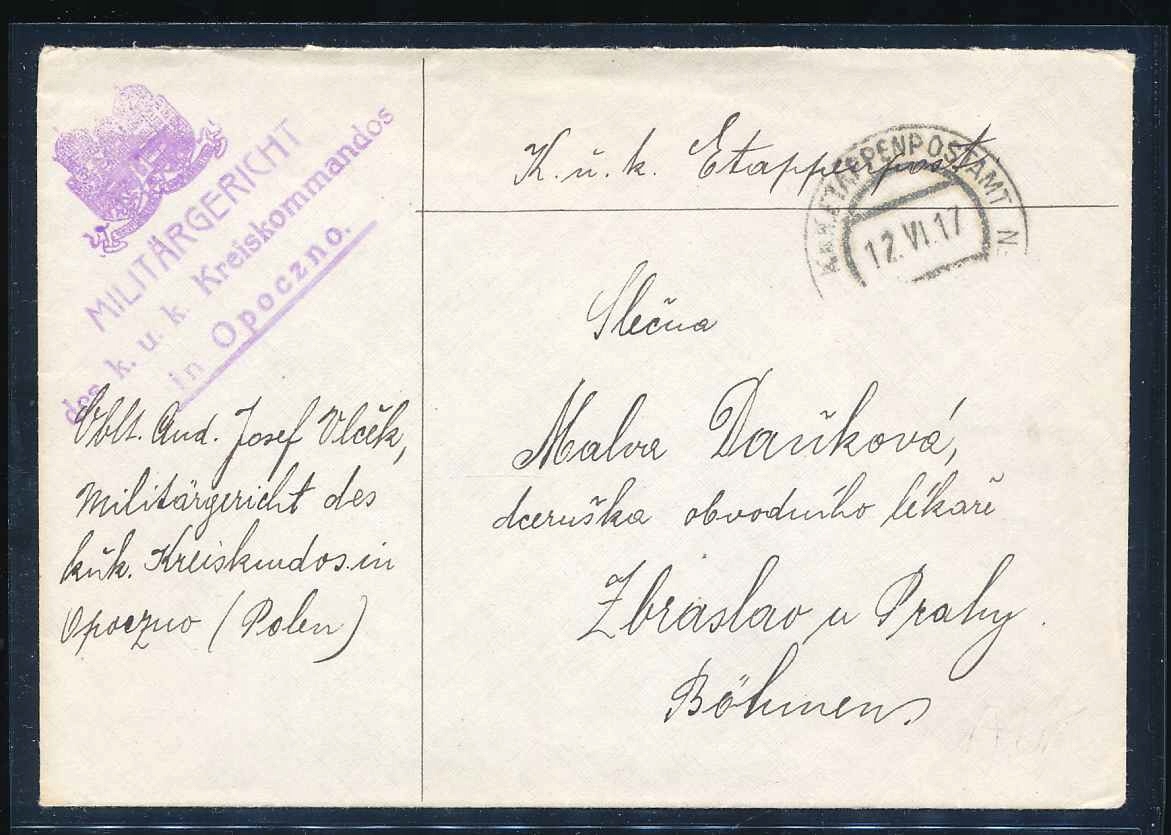 MILITÄRGERICHT
des k. u. k. Kreiskommandos
in Opoczno.
Oblt. Aud. Josef Vlček,
Militärgericht des
kuk. Kreiskmdos in
Opoczno (Polen)
K. u. k. Etappenpost
K.u.K. ETAPPENPOSTAMT
12.VI.17
Slečna
Malva Daňková,
dceruška obvodního lékaře
Zbraslav u Prahy.
Böhmen